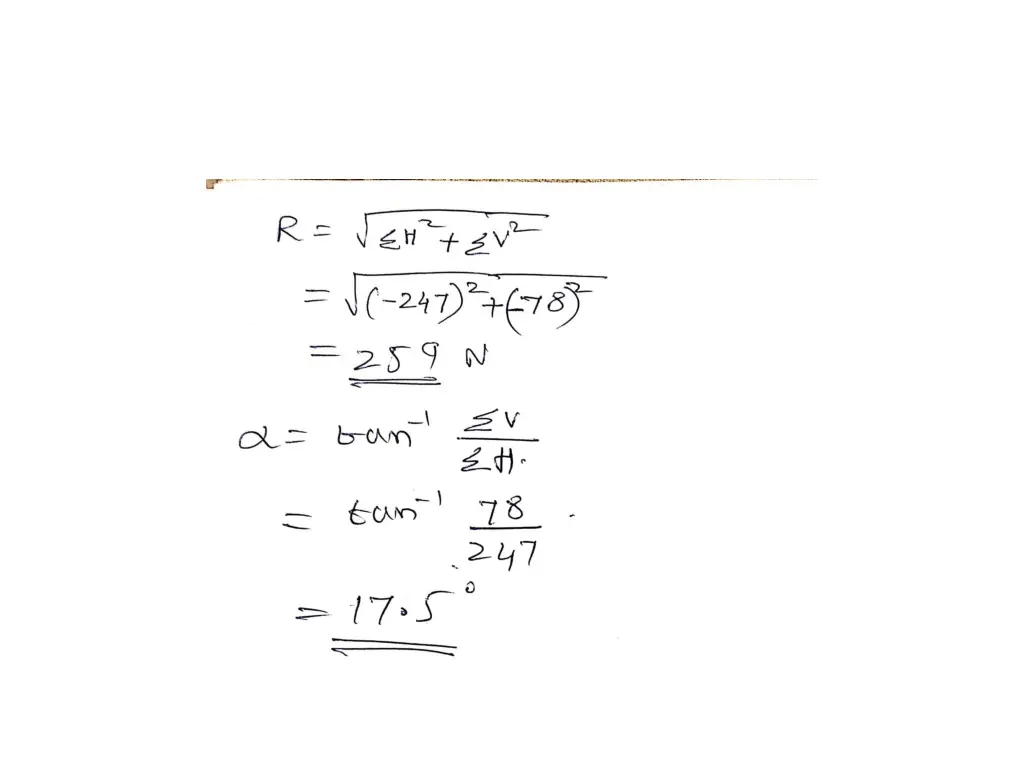 R = √ΣH² + ΣV²
= √(-247)² + (-78)²
= 259 N
α = tan⁻¹ ΣV / ΣH.
= tan⁻¹ 78 / 247
= 17.5°